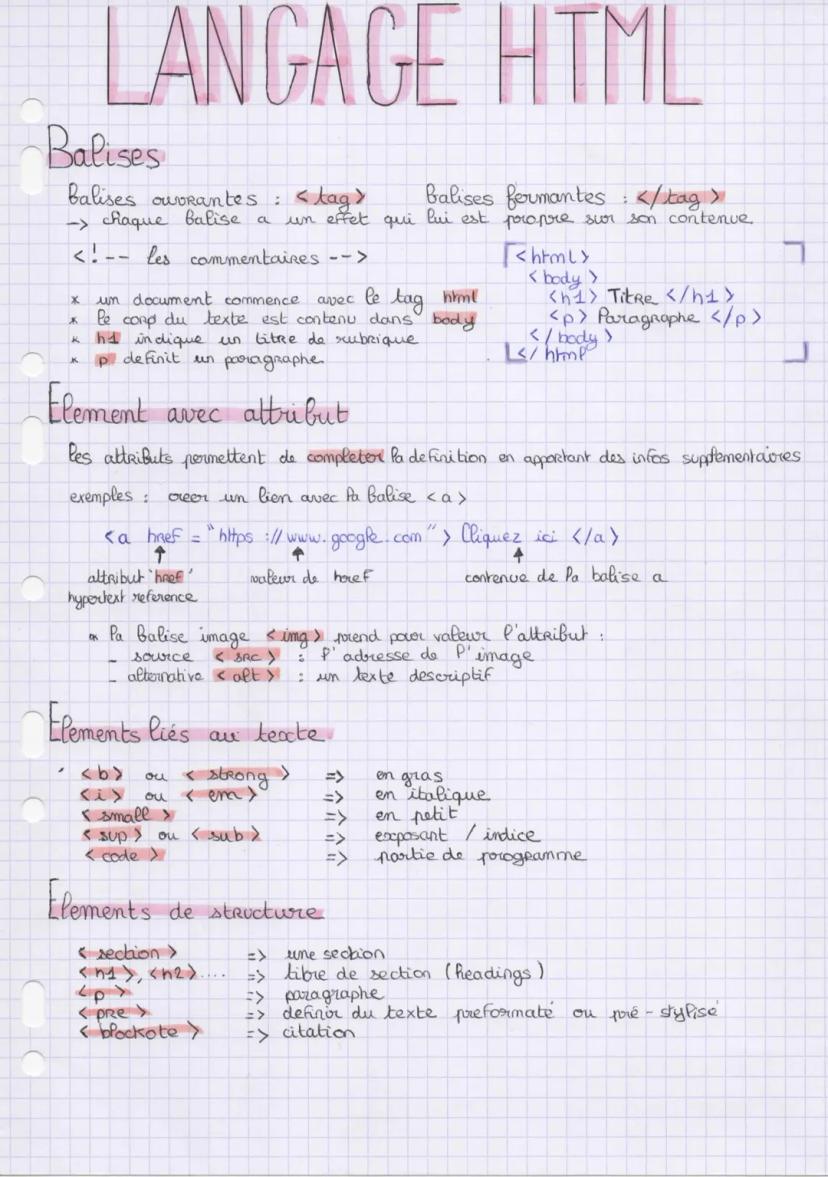 LANGAGE HTML
Balises
Balises ouvrantes : <tag> Balises fermantes : </tag>
-> chaque balise a un effet qui lui est propre sur son contenue
<!-- les commentaires -->
* un document commence avec le tag html
* le corp du texte est contenu dans body
* h1 indique un titre de rubrique
* p definit un paragraphe
<html>
<body>
<h1> Titre </h1>
<p> Paragraphe </p>
</body>
</html
Element avec attribut
les attributs permettent de completer la definition en apportant des infos supplementaires
exemples : creer un lien avec la balise <a>
<a href = "https://www.google.com"> Cliquez ici </a>
attribut 'href' valeur de href contenue de la balise a
hypertext reference
* la balise image <img> prend pour valeur l'attribut :
- source <src> : l'adresse de l'image
- alternative <alt> : un texte descriptif
Elements liés au texte
<b> ou <strong> => en gras
<i> ou <em> => en italique
<small> => en petit
<sup> ou <sub> => exposant / indice
<code> => partie de programme
Elements de structure
<section> => une section
<h1>, <h2>.... => titre de section (headings)
<p> => paragraphe
<pre> => definir du texte preformaté ou pré-stylisé
<blockote> => citation